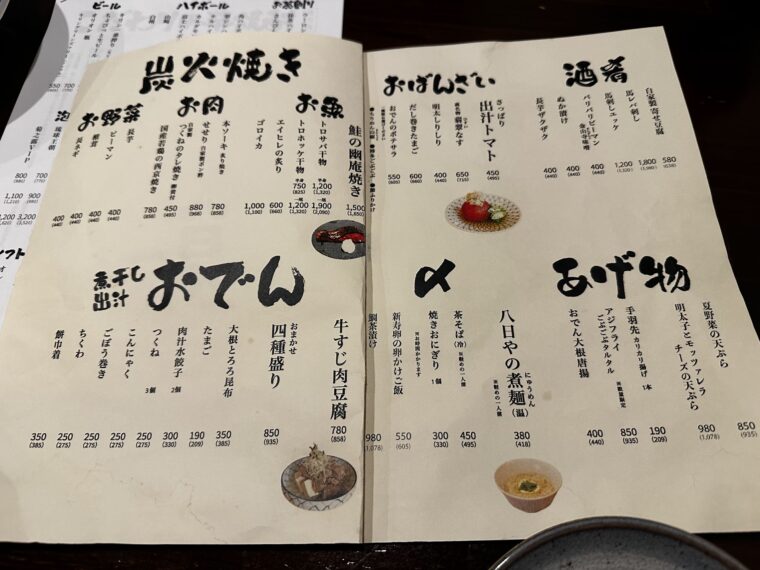 ビール
ハイボール
お茶割り
炭火焼き
お魚
鮭の幽庵焼き
1,500
(1,650)
トロサバ干物
半身 1,200
(1,320)
一尾 1,900
(2,090)
トロホッケ干物
半身 750
(825)
一尾 1,200
(1,320)
エイヒレの炙り
600
(660)
ゴロイカ
1,000
(1,100)
お肉
本ソーキ 炙り焼き
780
(858)
せせり 自家製ポン酢
880
(968)
つくねのタレ焼き 卵黄付
450
(495)
国産若鶏の西京焼き
780
(858)
お野菜
長芋
400
(440)
ピーマン
400
(440)
椎茸
400
(440)
長ネギ
400
(440)
煮干し出汁
おでん
牛すじ肉豆腐
780
(858)
おまかせ
四種盛り
850
(935)
大根とろろ昆布
350
(385)
たまご
190
(209)
肉汁水餃子 2個
300
(330)
つくね 3個
250
(275)
こんにゃく
250
(275)
ごぼう巻き
250
(275)
ちくわ
250
(275)
餅巾着
350
(385)
酒肴
自家製寄せ豆腐
580
(638)
馬レバ刺し
1,800
(1,980)
馬刺しユッケ
1,200
(1,320)
パリパリピーマン
金山寺味噌
400
(440)
ぬか漬け
400
(440)
長芋ザクザク
400
(440)
おばんざい
さっぱり
出汁トマト
450
(495)
翡翠なす
650
(715)
明太しりしり
400
(440)
だし巻きたまご
600
(660)
おでんのポテサラ
550
(605)
あげ物
夏野菜の天ぷら
850
(935)
明太子とモッツァレラ
チーズの天ぷら
980
(1,078)
手羽先 カリカリ揚げ 1本
190
(209)
アジフライ
ごぶごぶタルタル ※数量限定
850
(935)
おでん大根唐揚
400
(440)
〆
八日やの煮麺(温)
にゅうめん
※軽めの一人前
380
(418)
茶そば(冷)
※軽めの一人前
450
(495)
焼きおにぎり 1個
300
(330)
新寿卵の卵かけご飯
※お時間かかります
550
(605)
鯛茶漬け
980
(1,078)